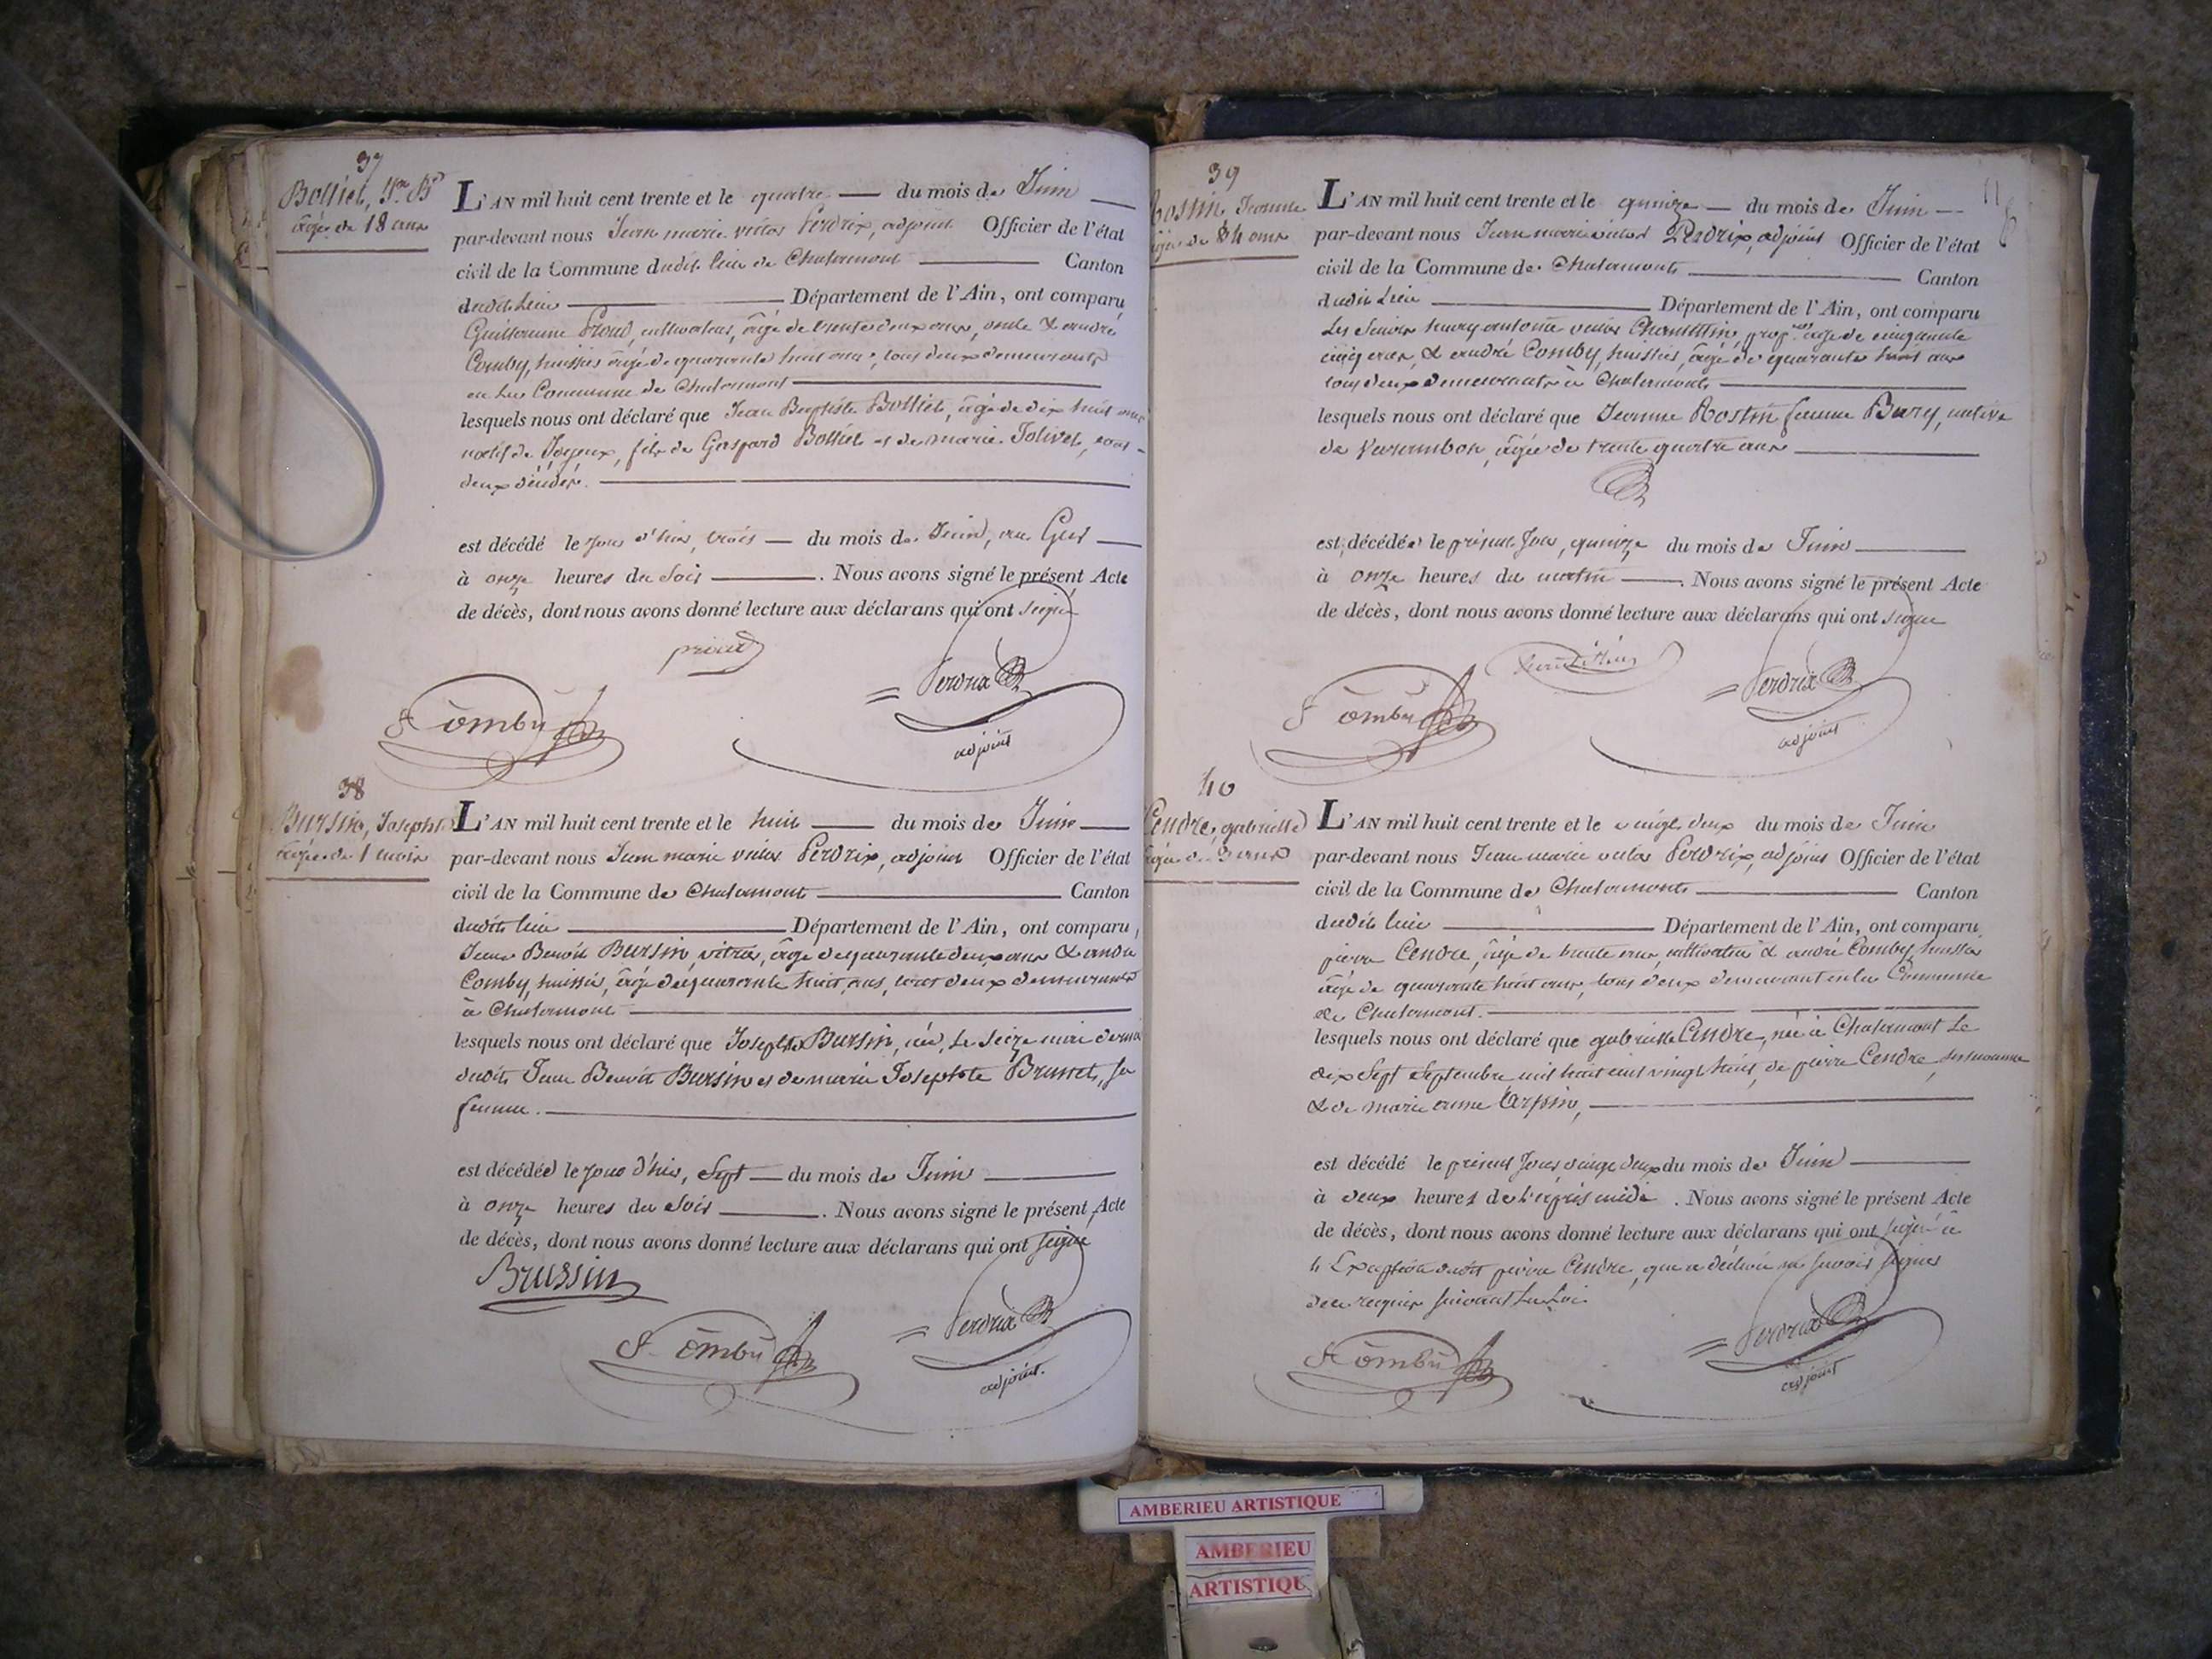 37
Bolliet, Jn Bte
âgé de 18 ans
L'AN mil huit cent trente et le quatre du mois de Juin
par-devant nous Jean marie victor Perdrix, adjoint Officier de l'état
civil de la Commune dudit lieu de Chalamont Canton
dudit lieu Département de l'Ain, ont comparu
Guillaume Proud, cultivateur, âgé de trente deux ans, oncle & andré
Comby, huissier âgé de quarante huit ans, tous deux demeurants
en la Commune de Chalamont
lesquels nous ont déclaré que Jean Baptiste Bolliet, âgé de dix huit ans
natif de Joyeux, fils de Gaspard Bolliet et de marie Jolivet, tous
deux décédés.
est décédé le jour d'hier, trois du mois de Juin, au
à onze heures du soir. Nous avons signé le présent Acte
de décès, dont nous avons donné lecture aux déclarans qui ont signé
proud
Comby
Perdrix
adjoint
38
Bursin, Josephte
âgée de 1 mois
L'AN mil huit cent trente et le huit du mois de Juin
par-devant nous Jean marie victor Perdrix, adjoint Officier de l'état
civil de la Commune de Chalamont Canton
dudit lieu Département de l'Ain, ont comparu,
Jean Benoit Bursin, vitrier, âgé de quarante deux ans & andré
Comby, huissier, âgé de quarante huit ans, tous deux demeurants
à Chalamont
lesquels nous ont déclaré que Josephte Bursin, née, le seize mai dernier
dudit Jean Benoit Bursin et de marie Josephte Brunet, sa
femme.
est décédée le jour d'hier, sept du mois de Juin
à onze heures du soir. Nous avons signé le présent Acte
de décès, dont nous avons donné lecture aux déclarans qui ont signé
Brussin
Comby
Perdrix
adjoint.
39
Rostin, Jeanne
âgée de 34 ans
L'AN mil huit cent trente et le quinze du mois de Juin
par-devant nous Jean marie victor Perdrix, adjoint Officier de l'état
civil de la Commune de Chalamont Canton
dudit lieu Département de l'Ain, ont comparu
Les Sieurs antoine victor âgé de cinquante
cinq ans, & andré Comby, huissier, âgé de quarante huit ans
tous deux demeurants à Chalamont
lesquels nous ont déclaré que Jeanne Rostin femme Bury, native
de Varambon, âgée de trente quatre ans
est décédée le présent Jour, quinze du mois de Juin
à onze heures du matin. Nous avons signé le présent Acte
de décès, dont nous avons donné lecture aux déclarans qui ont signé
Comby
Perdrix
adjoint
40
Cendre, gabrielle
âgée de ans
L'AN mil huit cent trente et le vingt deux du mois de Juin
par-devant nous Jean marie victor Perdrix, adjoint Officier de l'état
civil de la Commune de Chalamont Canton
dudit lieu Département de l'Ain, ont comparu
pierre Cendre, âgé de trente ans, cultivateur & andré Comby, huissier
âgé de quarante huit ans, tous deux demeurant en la Commune
de Chalamont.
lesquels nous ont déclaré que gabrielle Cendre, née à Chalamont le
dix sept Septembre mil huit cent vingt huit, de pierre Cendre,
& de marie anne Carpin,
est décédé le présent Jour vingt deux du mois de Juin
à deux heures de l'après midi. Nous avons signé le présent Acte
de décès, dont nous avons donné lecture aux déclarans qui ont signé à
l'Exception dudit pierre Cendre, qui a déclaré ne savoir signer
de ce requis suivant la Loi
Comby
Perdrix
adjoint
AMBERIEU ARTISTIQUE
AMBERIEU
ARTISTIQUE